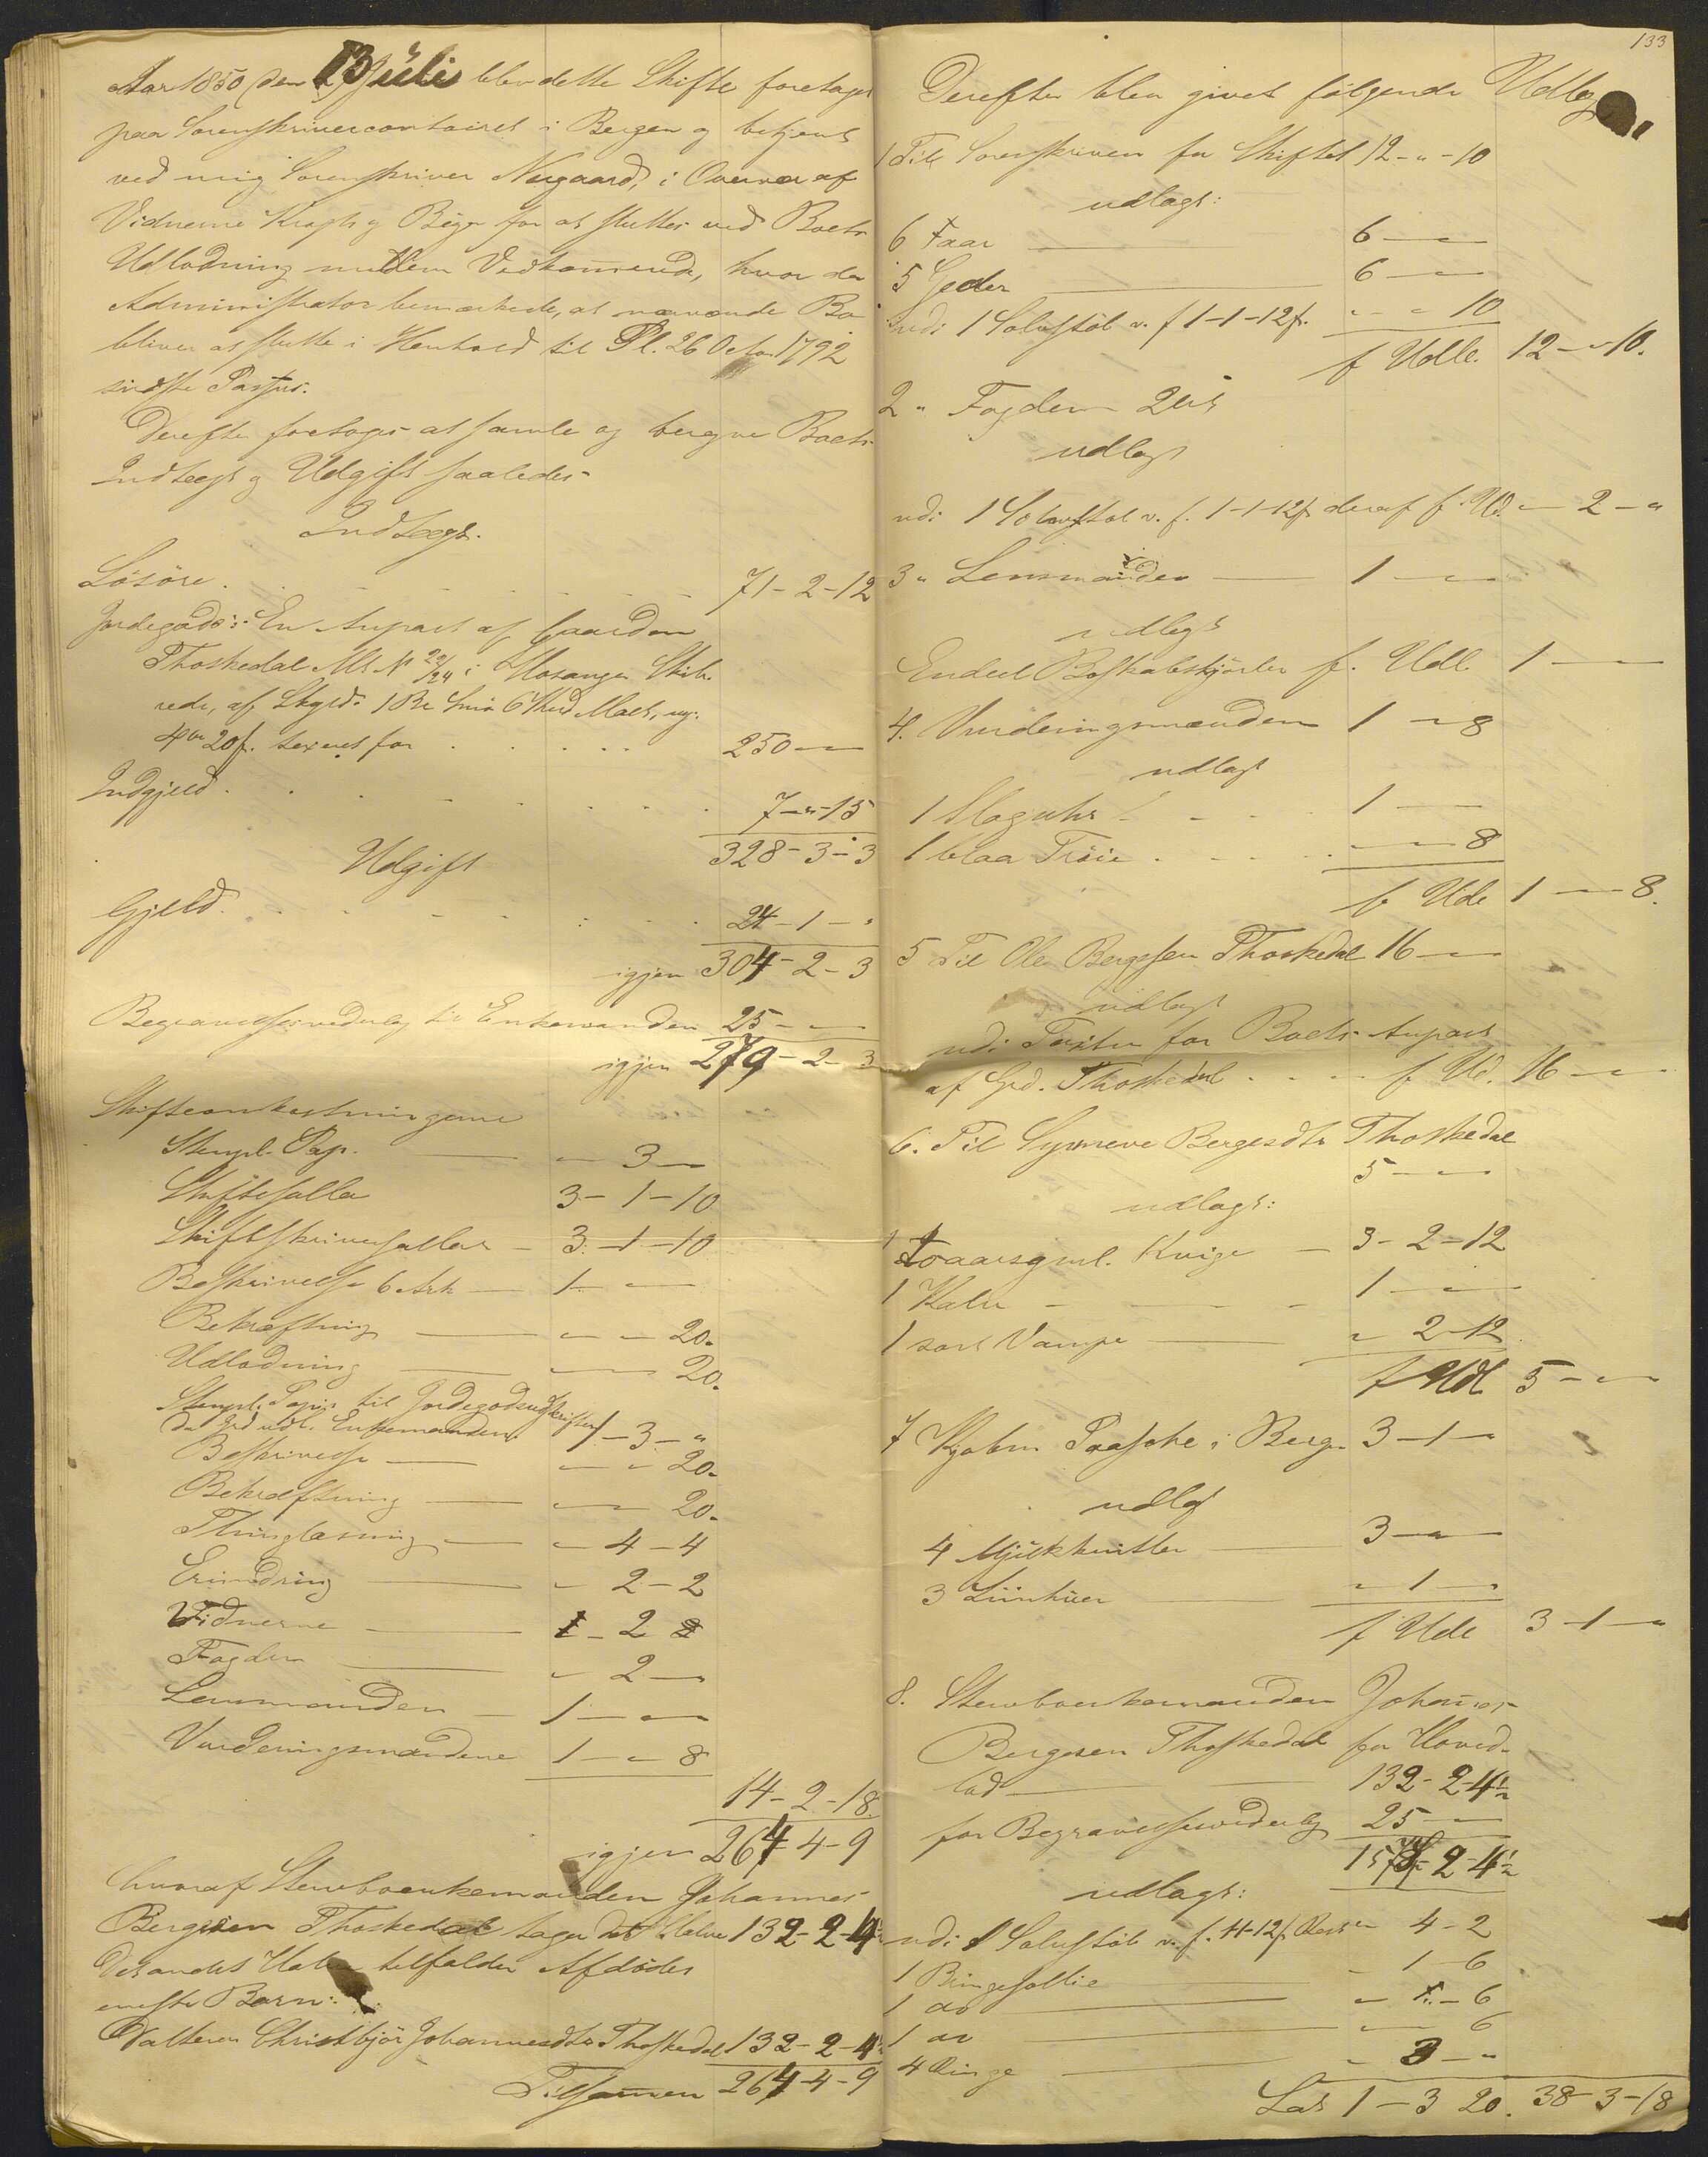 Aar 1850 den 13 Juli blev dette Skifte foretaget
paa Sorenskrivercontoiret i Bergen og betjent
ved mig Sorenskriver Nørgaard, i Overvær af
Vidnerne Krogh og Bøgh for at sluttes ved Boets
Udlodning mellem Vedkommende, hvor da
Administrator bemærkede, at nærværende Bo
bliver at slutte i Henhold til Pl. 26 Octbr 1792
sidste Passus.
Derefter foretoges at samle og beregne Boets
Indtægt og Udgift saaledes
Indtægt.
Løsøre 71-2-12
Jordegods: En Anpart af Gaarden
Thoskedal Mt. N 20/24 i Hosanger Skib-
rede, af Skyld 1 Pd Smør 6 Kvd Malt, ny:
4 ort 20 s. taxeret for 250 — —
Indgjeld 7 - " - 15
328 - 3 - 3
Udgift
Gjeld 24 - 1 - "
igjen 304 - 2 - 3
Begravelsesvederlag til Enkemanden 25 - — -
igjen 279 - 2 - 3
Skifteomkostningerne
Stempl. Pap. — " 3 —
Skiftesallær 3 - 1 - 10
Skifteskriversallær - 3 - 1 - 10
Beskrivelse 6 Ark — 1 - " —
Bekræftning — " — " 20.
Udlodning — " — 20.
Stempl. Papir til Jordegodsudskriften
da Grd udl. Enkemanden 1 - 3 - "
Beskrivelse — " — " 20.
Bekræftning — " — 20.
Thinglæsning — " 4 - 4
Erindring — " 2 - 2
Vidnerne — 2
Fogden — " 2 —
Lensmanden — 1 — " —
Vurderingsmændene 1 — " 8
14 - 2 - 18.
igjen 264 - 4 - 9
hvoraf Sterboenkemanden Johannes
Bergesen Thoskedal tager det Halve 132 - 2 - 4½
Det andet Halve tilfalder Afdødes
eneste Barn:
Datteren Christbjør Johannesdtr Thoskedal 132 - 2 - 4½
Tilsammen 264 - 4 - 9
133
Derefter blev givet følgende Udlæg
1 Til Sorenskriveren for Skiftet 12 - " - 10
udlagt:
6 Faar — 6 — " —
5 Geder — 6 — " —
udi 1 Sølvstøb v. f 1-1-12 s. " — " 10
f Udl. 12 — " 10.
2 " Fogden 2 ort
udlagt
udi 1 Sølvstøb v. f. 1-1-12 s. deraf f. Ud. " — 2 — "
3 " Lensmanden — 1 — " —
udlagt
Endeel Boskabskjørler f. Udl. 1 — " —
4. Vurderingsmændene 1 — " 8
udlagt
1 Slaguhr 1 — " —
1 blaa Trøie — " — 8
f Udl 1 — " — 8.
5 Til Ole Bergesen Thoskedal 16 — " —
udlagt
udi Taxten for Boets Anpart
af Grd. Thoskedal f Ud. 16 — " —
6. Til Synneve Bergesdtr Thoskedal
5 — " —
udlagt:
1 toaarsgml. Kvige — 3 - 2 - 12
1 Kalv — 1 — " —
1 sort Vampe — " 2 - 12
f Udl 5 — " —
7 Kjøbm. Paasche i Bergen 3 - 1 - "
udlagt
4 Mjelkeknitler — 3 — " —
3 — " 1 — "
f Udl 3 - 1 - "
8. Sterboenkemanden Johannes
Bergesen Thoskedal for Hoved-
lod — 132 - 2 - 4½
for Begravelsesvederlag 25 — " —
157 - 2 - 4½
udlagt:
udi 1 Sølvstøb v. f. 1-1-12 s. Rest " 4 - 2
1 — " 1 - 6
1 do — " — 6
1 do — " — 6
4 Ringe — " 3 — "
Lat 1 - 3 20. 38 - 3 - 18